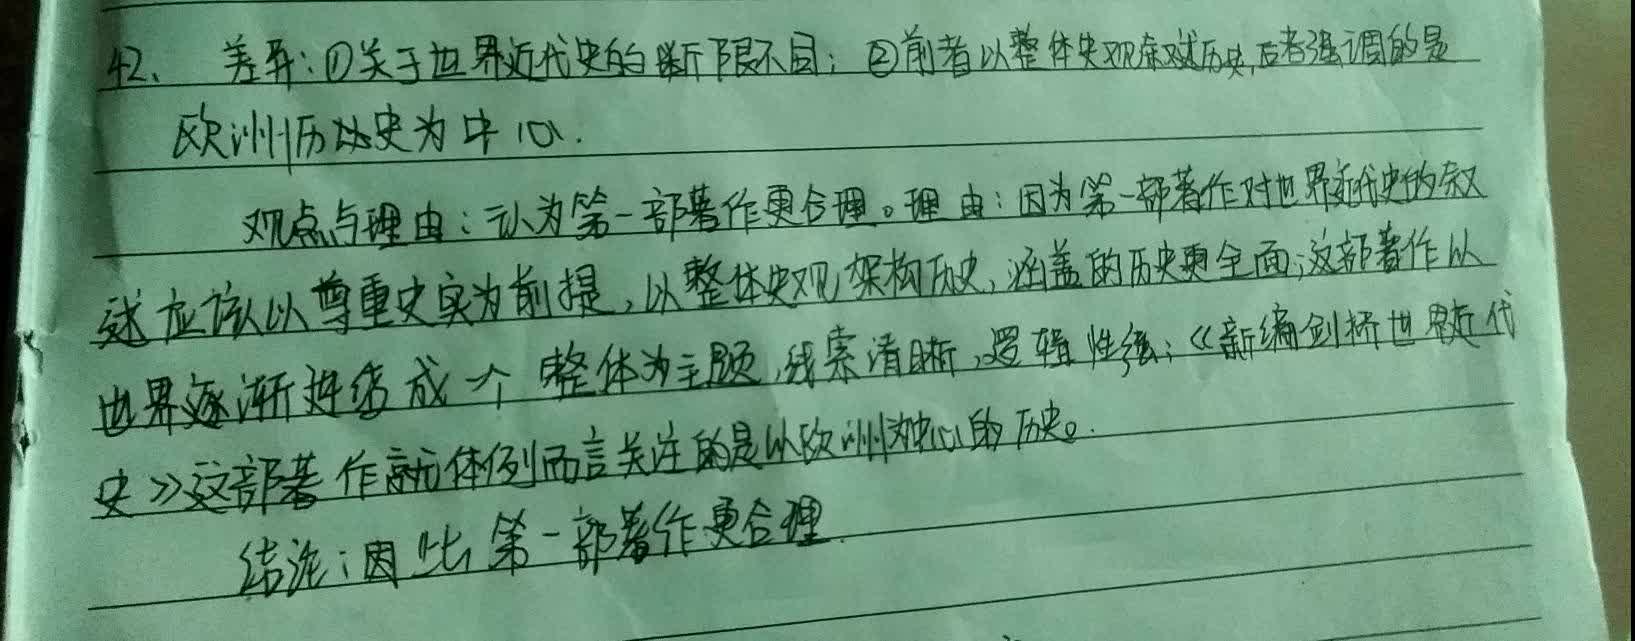 42、 差异:①关于世界近代史的断限不同; ②前者以整体史观叙述历史,后者强调的是
欧洲历史为中心.
观点与理由:认为第一部著作更合理。理由:因为第一部著作对世界近代史的叙
述应该以尊重史实为前提,以整体史观,架构历史,涵盖的历史更全面;这部著作以
世界逐渐连结成一个整体为主题,线索清晰,逻辑性强;《新编剑桥世界近代
史》这部著作就体例而言关注的是以欧洲为中心的历史。
结论:因此第一部著作更合理.